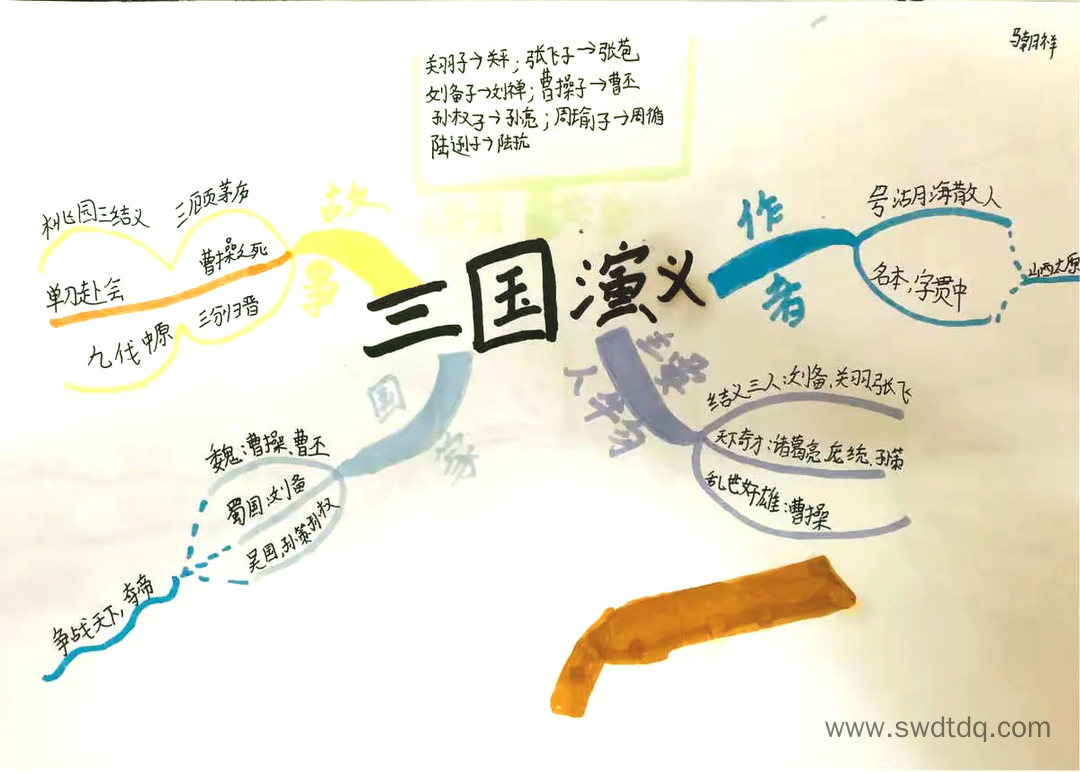 马朝祥
关羽子→关平；张飞子→张苞
刘备子→刘禅；曹操子→曹丕
孙权子→孙亮；周瑜子→周循
陆逊子→陆抗
三国演义
故事
桃园三结义
三顾茅庐
曹操之死
单刀赴会
三分归晋
九伐中原
作者
号:湖海散人
名本,字贯中
山西太原
国家
魏:曹操、曹丕
蜀国:刘备
吴国:孙策孙权
争战天下,夺帝
主要人物
结义三人:刘备、关羽、张飞
天下奇才:诸葛亮、庞统、孙策
乱世奸雄:曹操
www.swdtdq.com